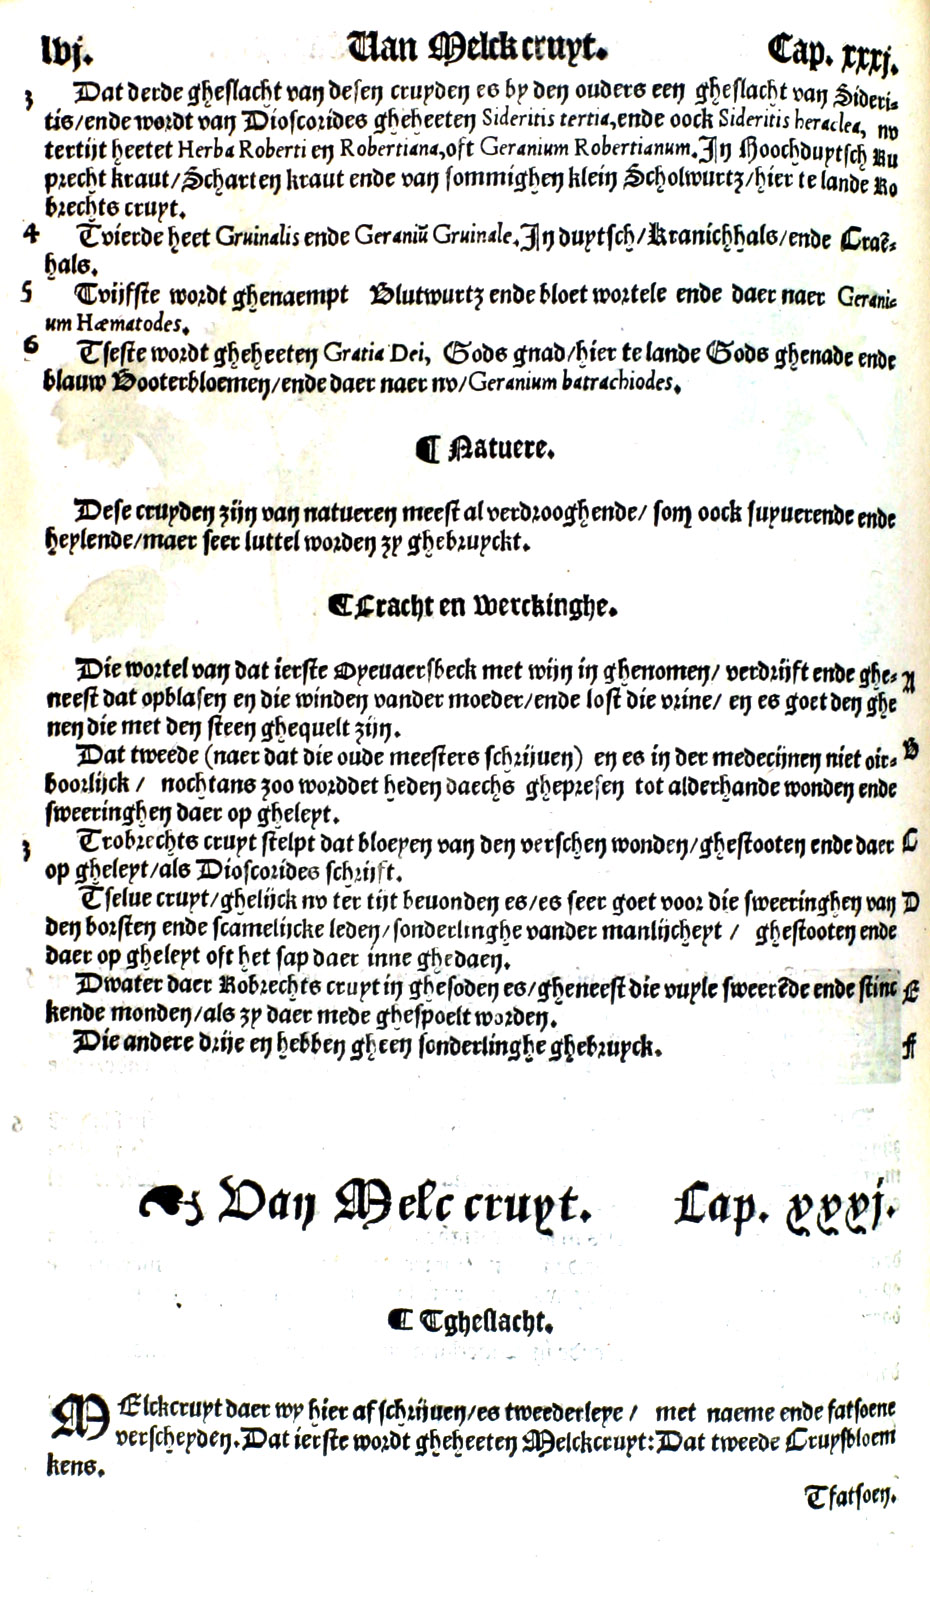 lvj. Van Melckcruyt. Cap. xxxj.
3 Dat derde gheslacht van desen cruyden es by den ouders een gheslacht van Sideri-
tis/ende wordt van Dioscorides gheheeten Sideritis tertia,ende oock Sideritis heraclea, nv
tertijt heetet Herba Roberti en Robertiana,oft Geranium Robertianum.In Hoochduytsch Ru
precht kraut/Scharten kraut ende van sommighen klein Scholwurtz/hier te lande Ro
brechts cruyt.
4 Tvierde heet Gruinalis ende Geraniũ Gruinale.In duytsch/Kranichhals/ende Craẽ-
hals.
5 Tvijfste wordt ghenaempt Blutwurtz ende bloet wortele ende daer naer Gerani-
um Hæmatodes.
6 Tseste wordt gheheeten Gratia Dei, Gods gnad/hier te lande Gods ghenade ende
blauw Booterbloemen/ende daer naer nv/Geranium batrachiodes.
¶ Natuere.
Dese cruyden zijn van natueren meest al verdrooghende/ som oock supuerende ende
heylende/maer seer luttel worden zy ghebruyckt.
¶ Cracht en Werckinghe.
Die wortel van dat ierste Oyevaersbeck met wijn in ghenomen/ verdrijft ende ghe- A
neest dat opblasen en die winden vander moeder/ende lost die vrine/ en es goet den ghe
nen die met den steen ghequelt zijn.
Dat tweede (naer dat die oude meesters schrijuen) en es in der medecijnen niet oir- B
boorlijck / nochtans zoo worddet heden daechs ghepresen tot alderhande wonden ende
sweeringhen daer op gheleyt.
3 Trobrechts cruyt stelpt dat bloeyen van den verschen wonden/ghestooten ende daer C
op gheleyt/als Dioscorides schrijft.
Tselue cruyt/ghelijck nv ter tijt beuonden es/es seer goet voor die sweeringhen van D
den borsten ende scamelijcke leden/sonderlinghe vander manlijcheyt / ghestooten ende
daer op gheleyt oft het sap daer inne ghedaen.
Dwater daer Robrechts cruyt in ghesoden es/gheneest die vuyle sweerẽde ende stinc E
kende monden/als zy daer mede ghespoelt worden.
Die andere drije en hebben gheen sonderlinghe ghebruyck. F
Van Melc cruyt. Cap. xxxj.
¶ Tgheslacht.
MElckcruyt daer wy hier af schrijuen/es tweederleye / met naeme ende fatsoene
verscheyden.Dat ierste wordt gheheeten Melckcruyt:Dat tweede Cruysbloem
kens.
Tfatsoen.